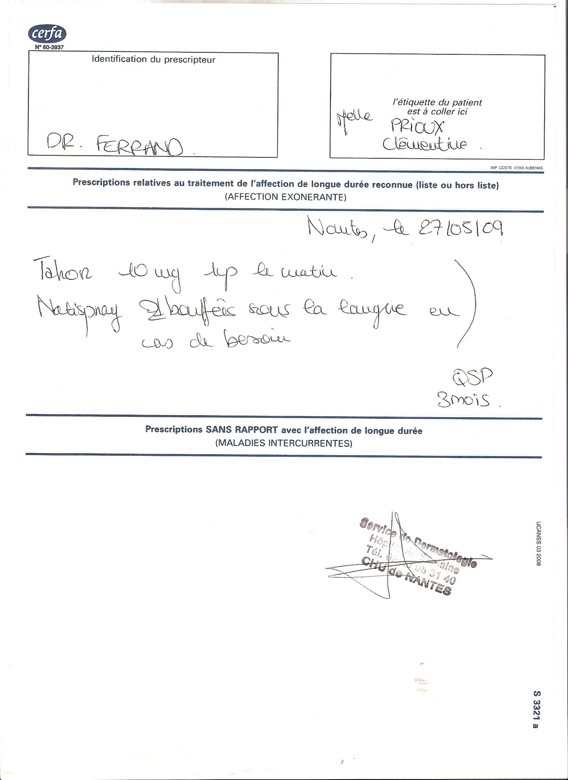 cerfa
N° 60-3937
Identification du prescripteur
DR. FERRAND.
l'étiquette du patient
est à coller ici
Melle PRIOUX
Clémentine.
IMP. COSTE 07200 AUBENAS
Prescriptions relatives au traitement de l'affection de longue durée reconnue (liste ou hors liste)
(AFFECTION EXONERANTE)
Nantes, le 27/05/09
Tahor 10 mg 1cp le matin.
Natispray bouffées sous la langue en
cas de besoin
QSP
3 mois.
Prescriptions SANS RAPPORT avec l'affection de longue durée
(MALADIES INTERCURRENTES)
Service de Dermatologie
Tél.
31 40
CHU de NANTES
UCANSS 03 2008
S 3321 a